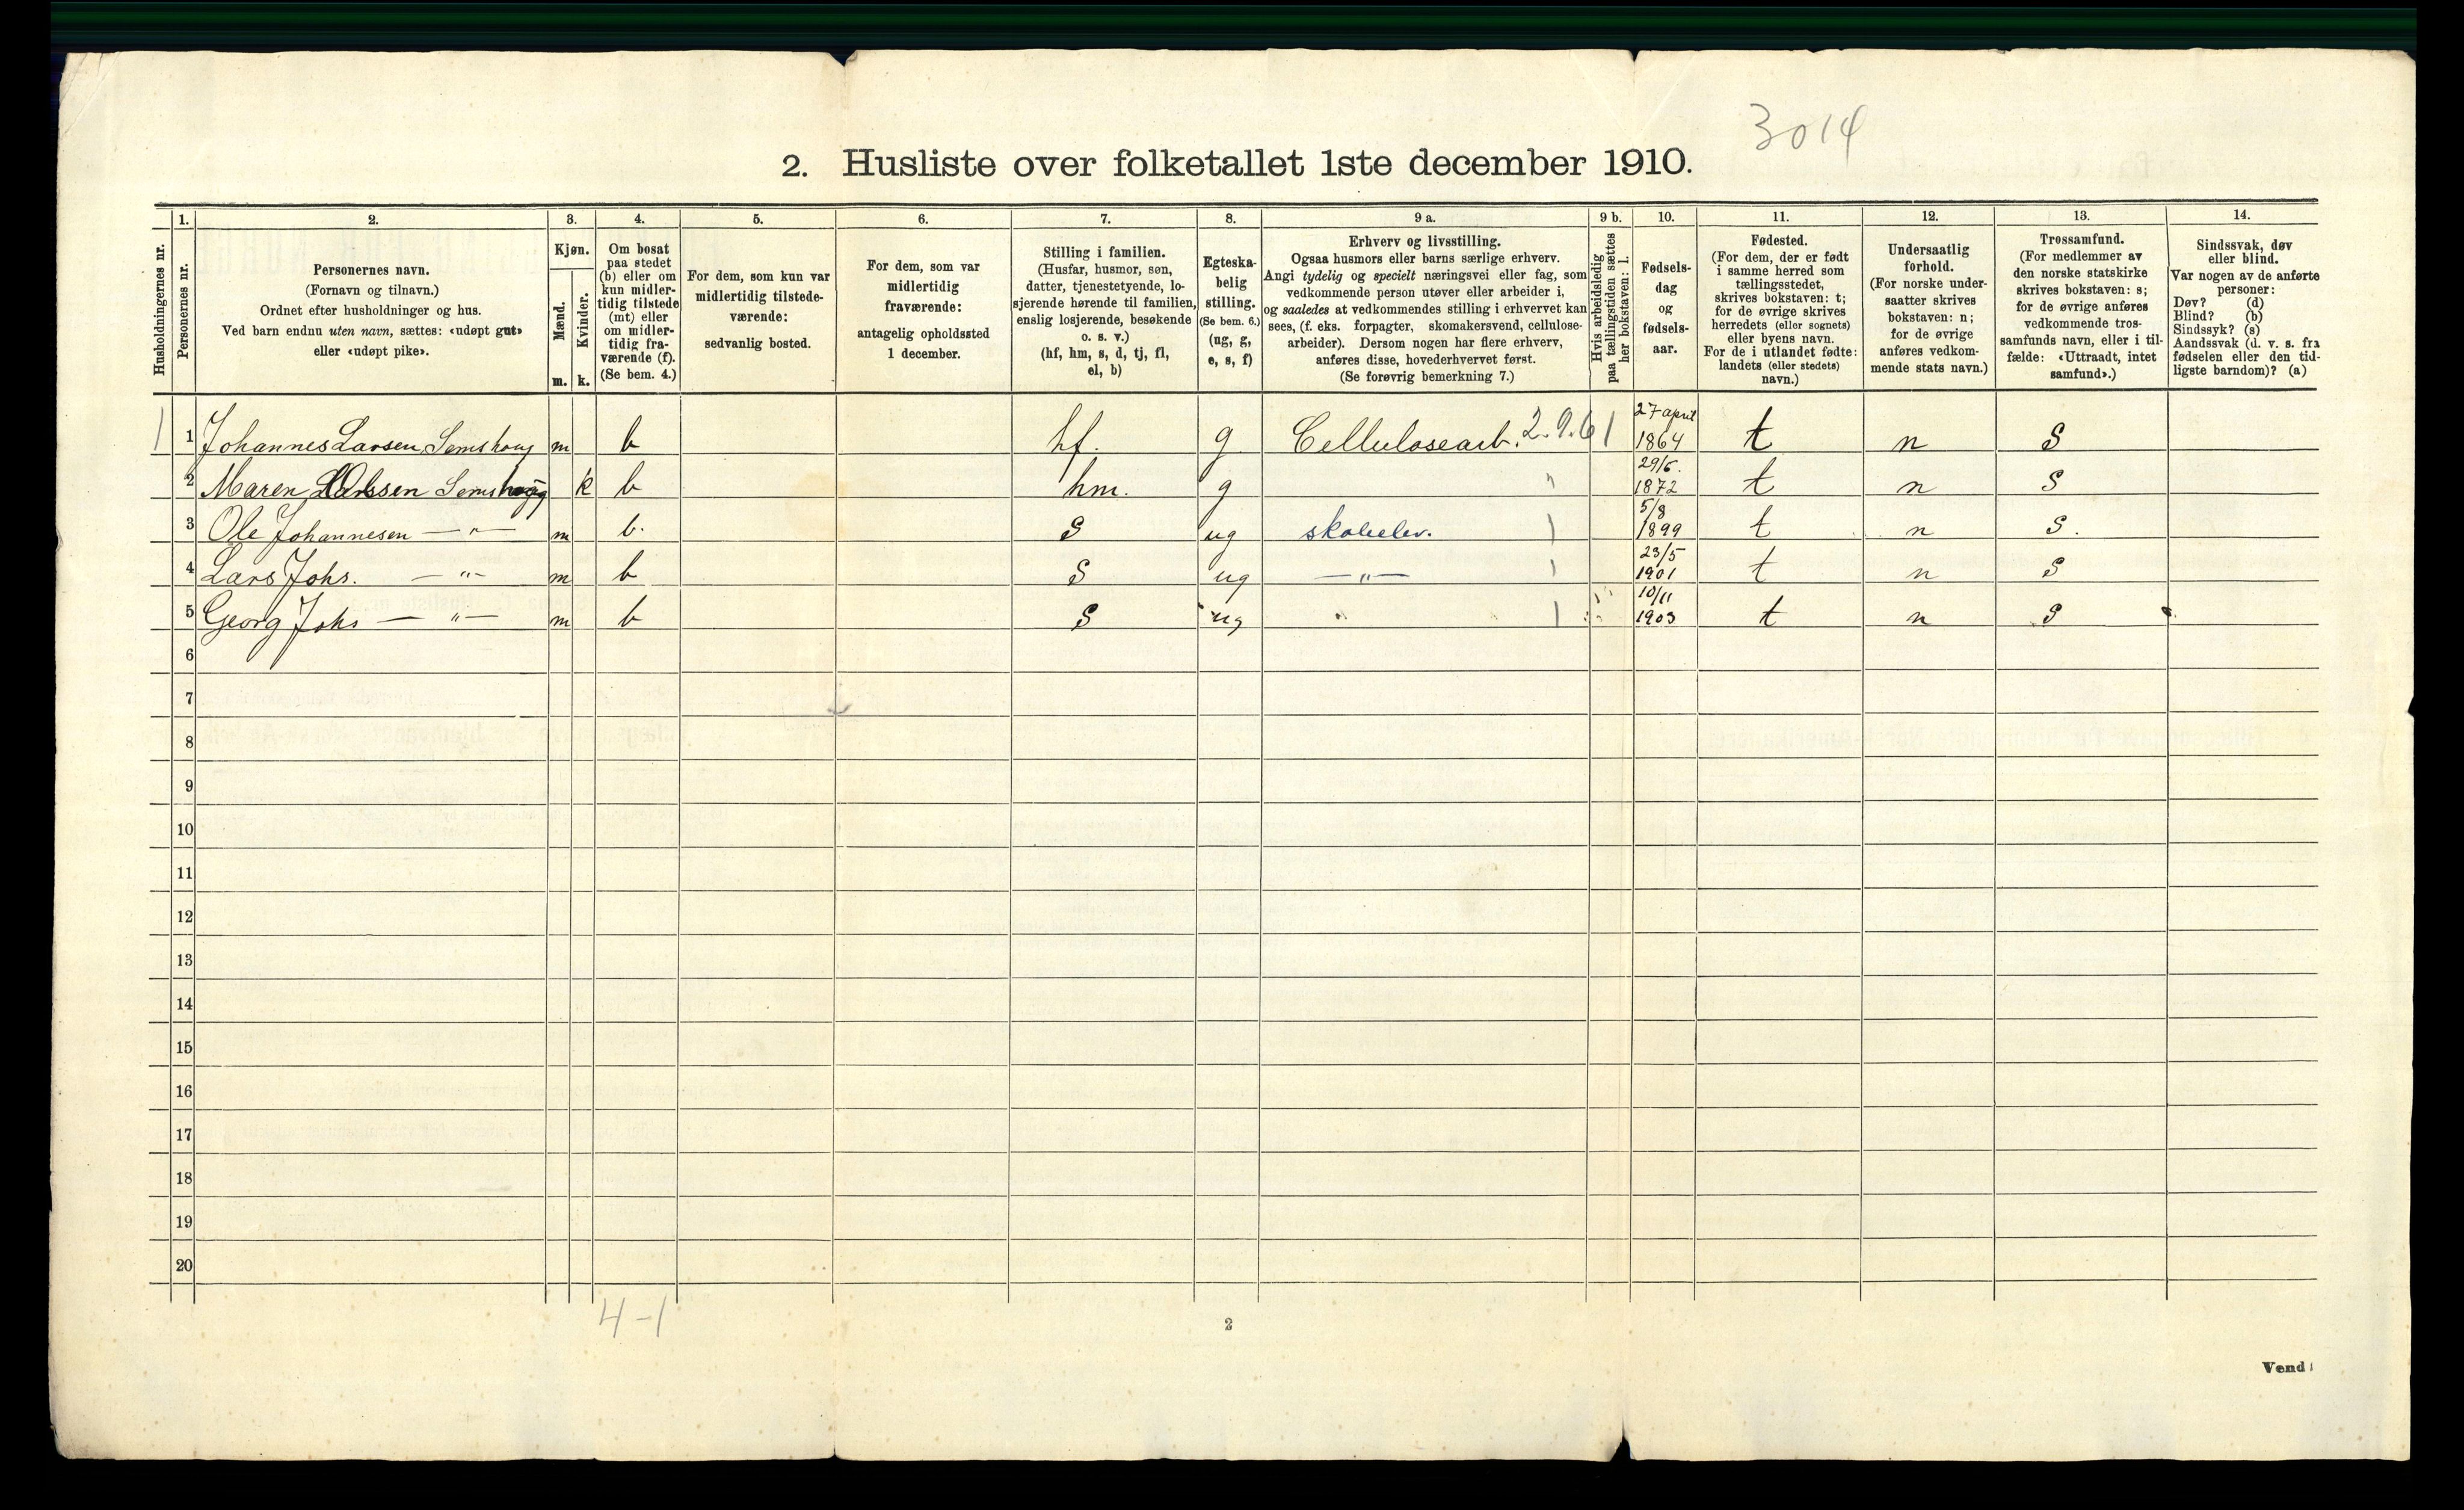 3014
2. Husliste over folketallet 1ste december 1910.
Husholdningernes nr.
1.
Personernes nr.
2.
Personernes navn.
(Fornavn og tilnavn.)
Ordnet efter husholdninger og hus.
Ved barn endnu uten navn, sættes: «udøpt gut»
eller «udøpt pike».
3.
Kjøn.
Mænd.
Kvinder.
m. k.
4.
Om bosat
paa stedet
(b) eller om
kun midler-
tidig tilstede
(mt) eller
om midler-
tidig fra-
værende (f).
(Se bem. 4.)
5.
For dem, som kun var
midlertidig tilstede-
værende:
sedvanlig bosted.
6.
For dem, som var
midlertidig
fraværende:
antagelig opholdssted
1 december.
7.
Stilling i familien.
(Husfar, husmor, søn,
datter, tjenestetyende, lo-
sjerende hørende til familien,
enslig losjerende, besøkende
o. s. v.)
(hf, hm, s, d, tj, fl,
el, b)
8.
Egteska-
belig
stilling.
(Se bem. 6.)
(ug, g,
e, s, f)
9 a.
Erhverv og livsstilling.
Ogsaa husmors eller barns særlige erhverv.
Angi tydelig og specielt næringsvei eller fag, som
vedkommende person utøver eller arbeider i,
og saaledes at vedkommendes stilling i erhvervet kan
sees, (f. eks. forpagter, skomakersvend, cellulose-
arbeider). Dersom nogen har flere erhverv,
anføres disse, hovederhvervet først.
(Se forøvrig bemerkning 7.)
9 b.
Hvis arbeidsledig
paa tællingstiden sættes
her bokstaven: l.
10.
Fødsels-
dag
og
fødsels-
aar.
11.
Fødested.
(For dem, der er født
i samme herred som
tællingsstedet,
skrives bokstaven: t;
for de øvrige skrives
herredets (eller sognets)
eller byens navn.
For de i utlandet fødte:
landets (eller stedets)
navn.)
12.
Undersaatlig
forhold.
(For norske under-
saatter skrives
bokstaven: n;
for de øvrige
anføres vedkom-
mende stats navn.)
13.
Trossamfund.
(For medlemmer av
den norske statskirke
skrives bokstaven: s;
for de øvrige anføres
vedkommende tros-
samfunds navn, eller i til-
fælde: «Uttraadt, intet
samfund».)
14.
Sindssvak, døv
eller blind.
Var nogen av de anførte
personer:
Døv? (d)
Blind? (b)
Sindssyk? (s)
Aandssvak (d. v. s. fra
fødselen eller den tid-
ligste barndom)? (a)
1 1 Johannes Larsen Semshoug m b hf. g Cellulosearb. 2.9.61 27 april 1864 t n S
2 Maren Semshoug k b hm. g " 29/6. 1872 t n S
3 Ole Johannesen — " — m b. S ug skoleelev. 5/8 1899 t n S.
4 Lars Johs. — " — m b S ug — " — 23/5 1901 t n S
5 Georg Johs — " — m b S ug " 10/11 1903 t n S
6
7
8
9
10
11
12
13
14
15
16
17
18
19
20
4-1
2
Vend!